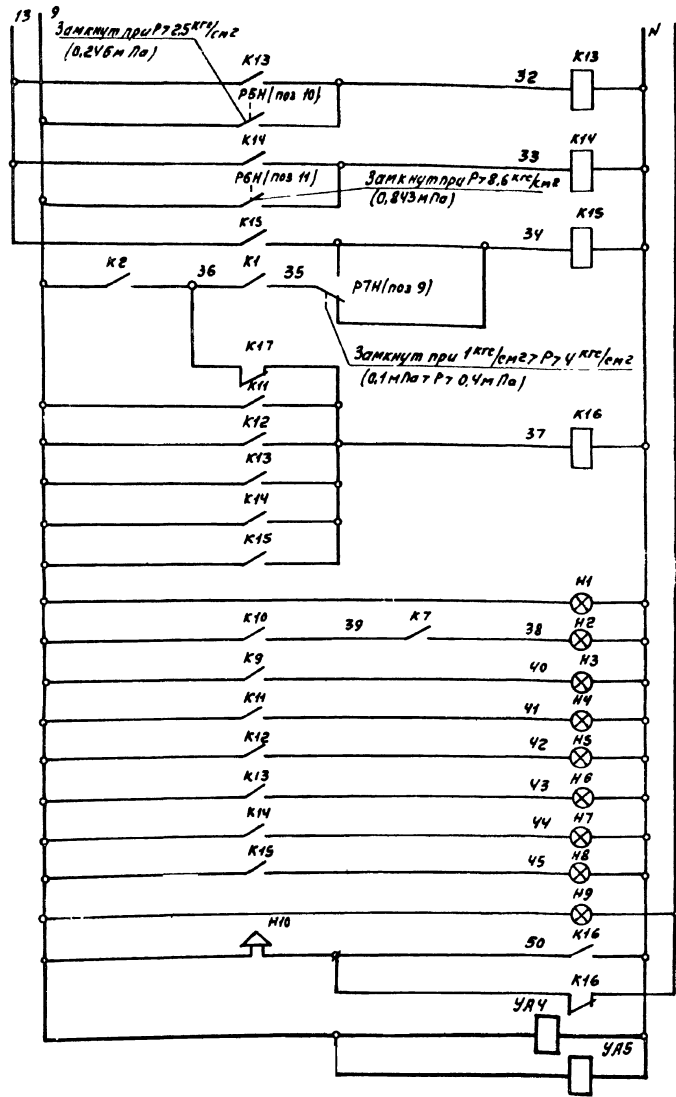 13 9
N
Замкнут при P>2,5 кгс/см2
(0,246мПа)
К13
32
К13
Р5Н(поз 10)
К14
33
К14
Р6Н(поз 11)
Замкнут при P>8,6 кгс/см2
(0,843мПа)
К15
34
К15
К2
36
К1
35
Р7Н(поз 9)
К17
Замкнут при 1 кгс/см2>P>4 кгс/см2
(0,1мПа>P>0,4мПа)
К11
К12
37
К16
К13
К14
К15
Н1
К10
39
К7
38
Н2
К9
40
Н3
К11
41
Н4
К12
42
Н5
К13
43
Н6
К14
44
Н7
К15
45
Н8
Н9
Н10
50
К16
К16
УА4
УА5